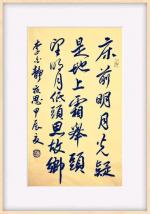 床前明月光疑
是地上霜舉頭
望明月低頭思故鄉
李白靜夜思甲辰夏